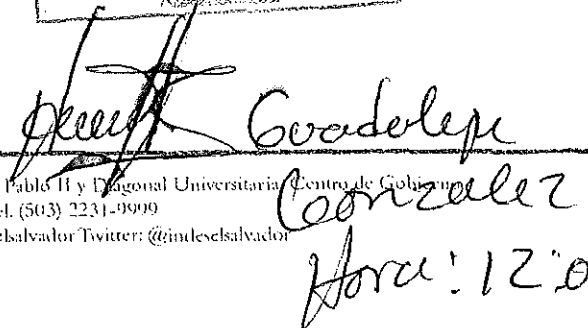 Guadalupe
Pablo II y Diagonal Universitaria, Centro de Gobierno
el. (503) 2231-9999
González
elsalvador Twitter: @indeselsalvador
Hora: 12:0